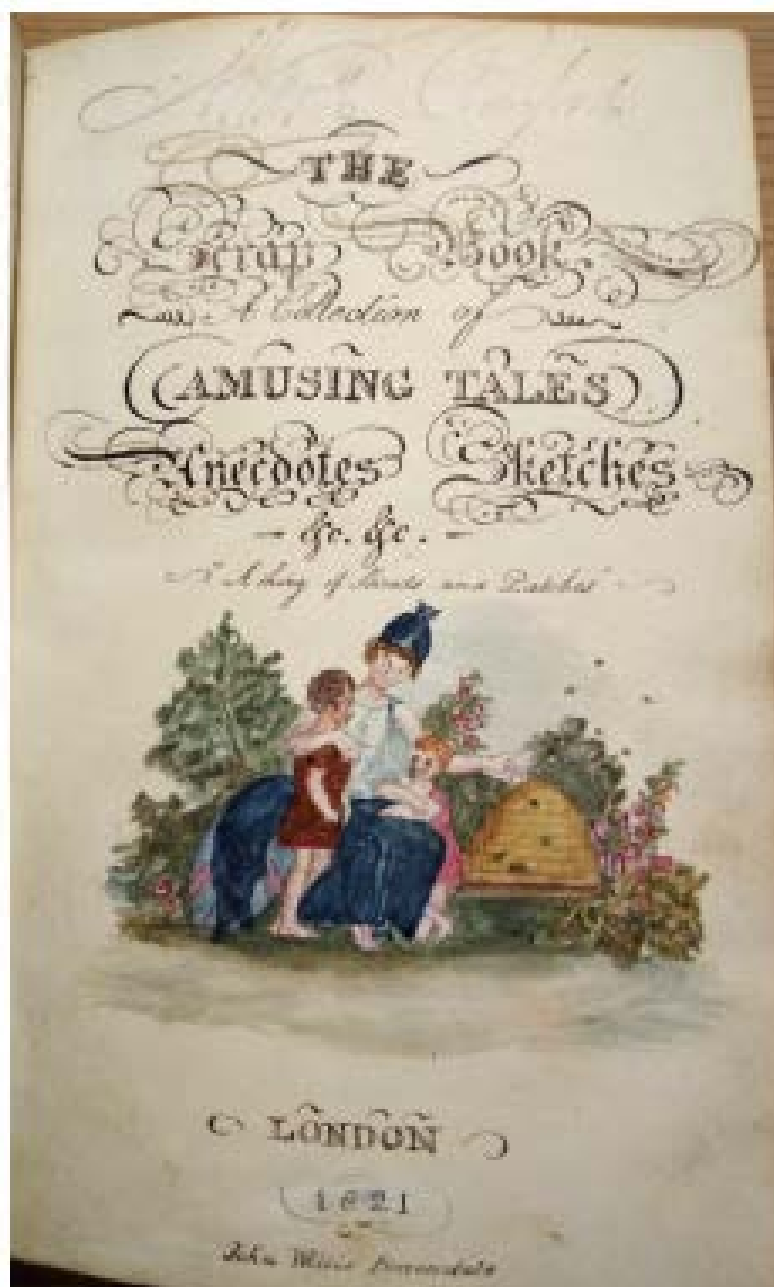 THE
Scrap Book
A Collection of
AMUSING TALES
Anecdotes Sketches
&c. &c.
"A thing of Shreds and Patches"
LONDON
1821
John